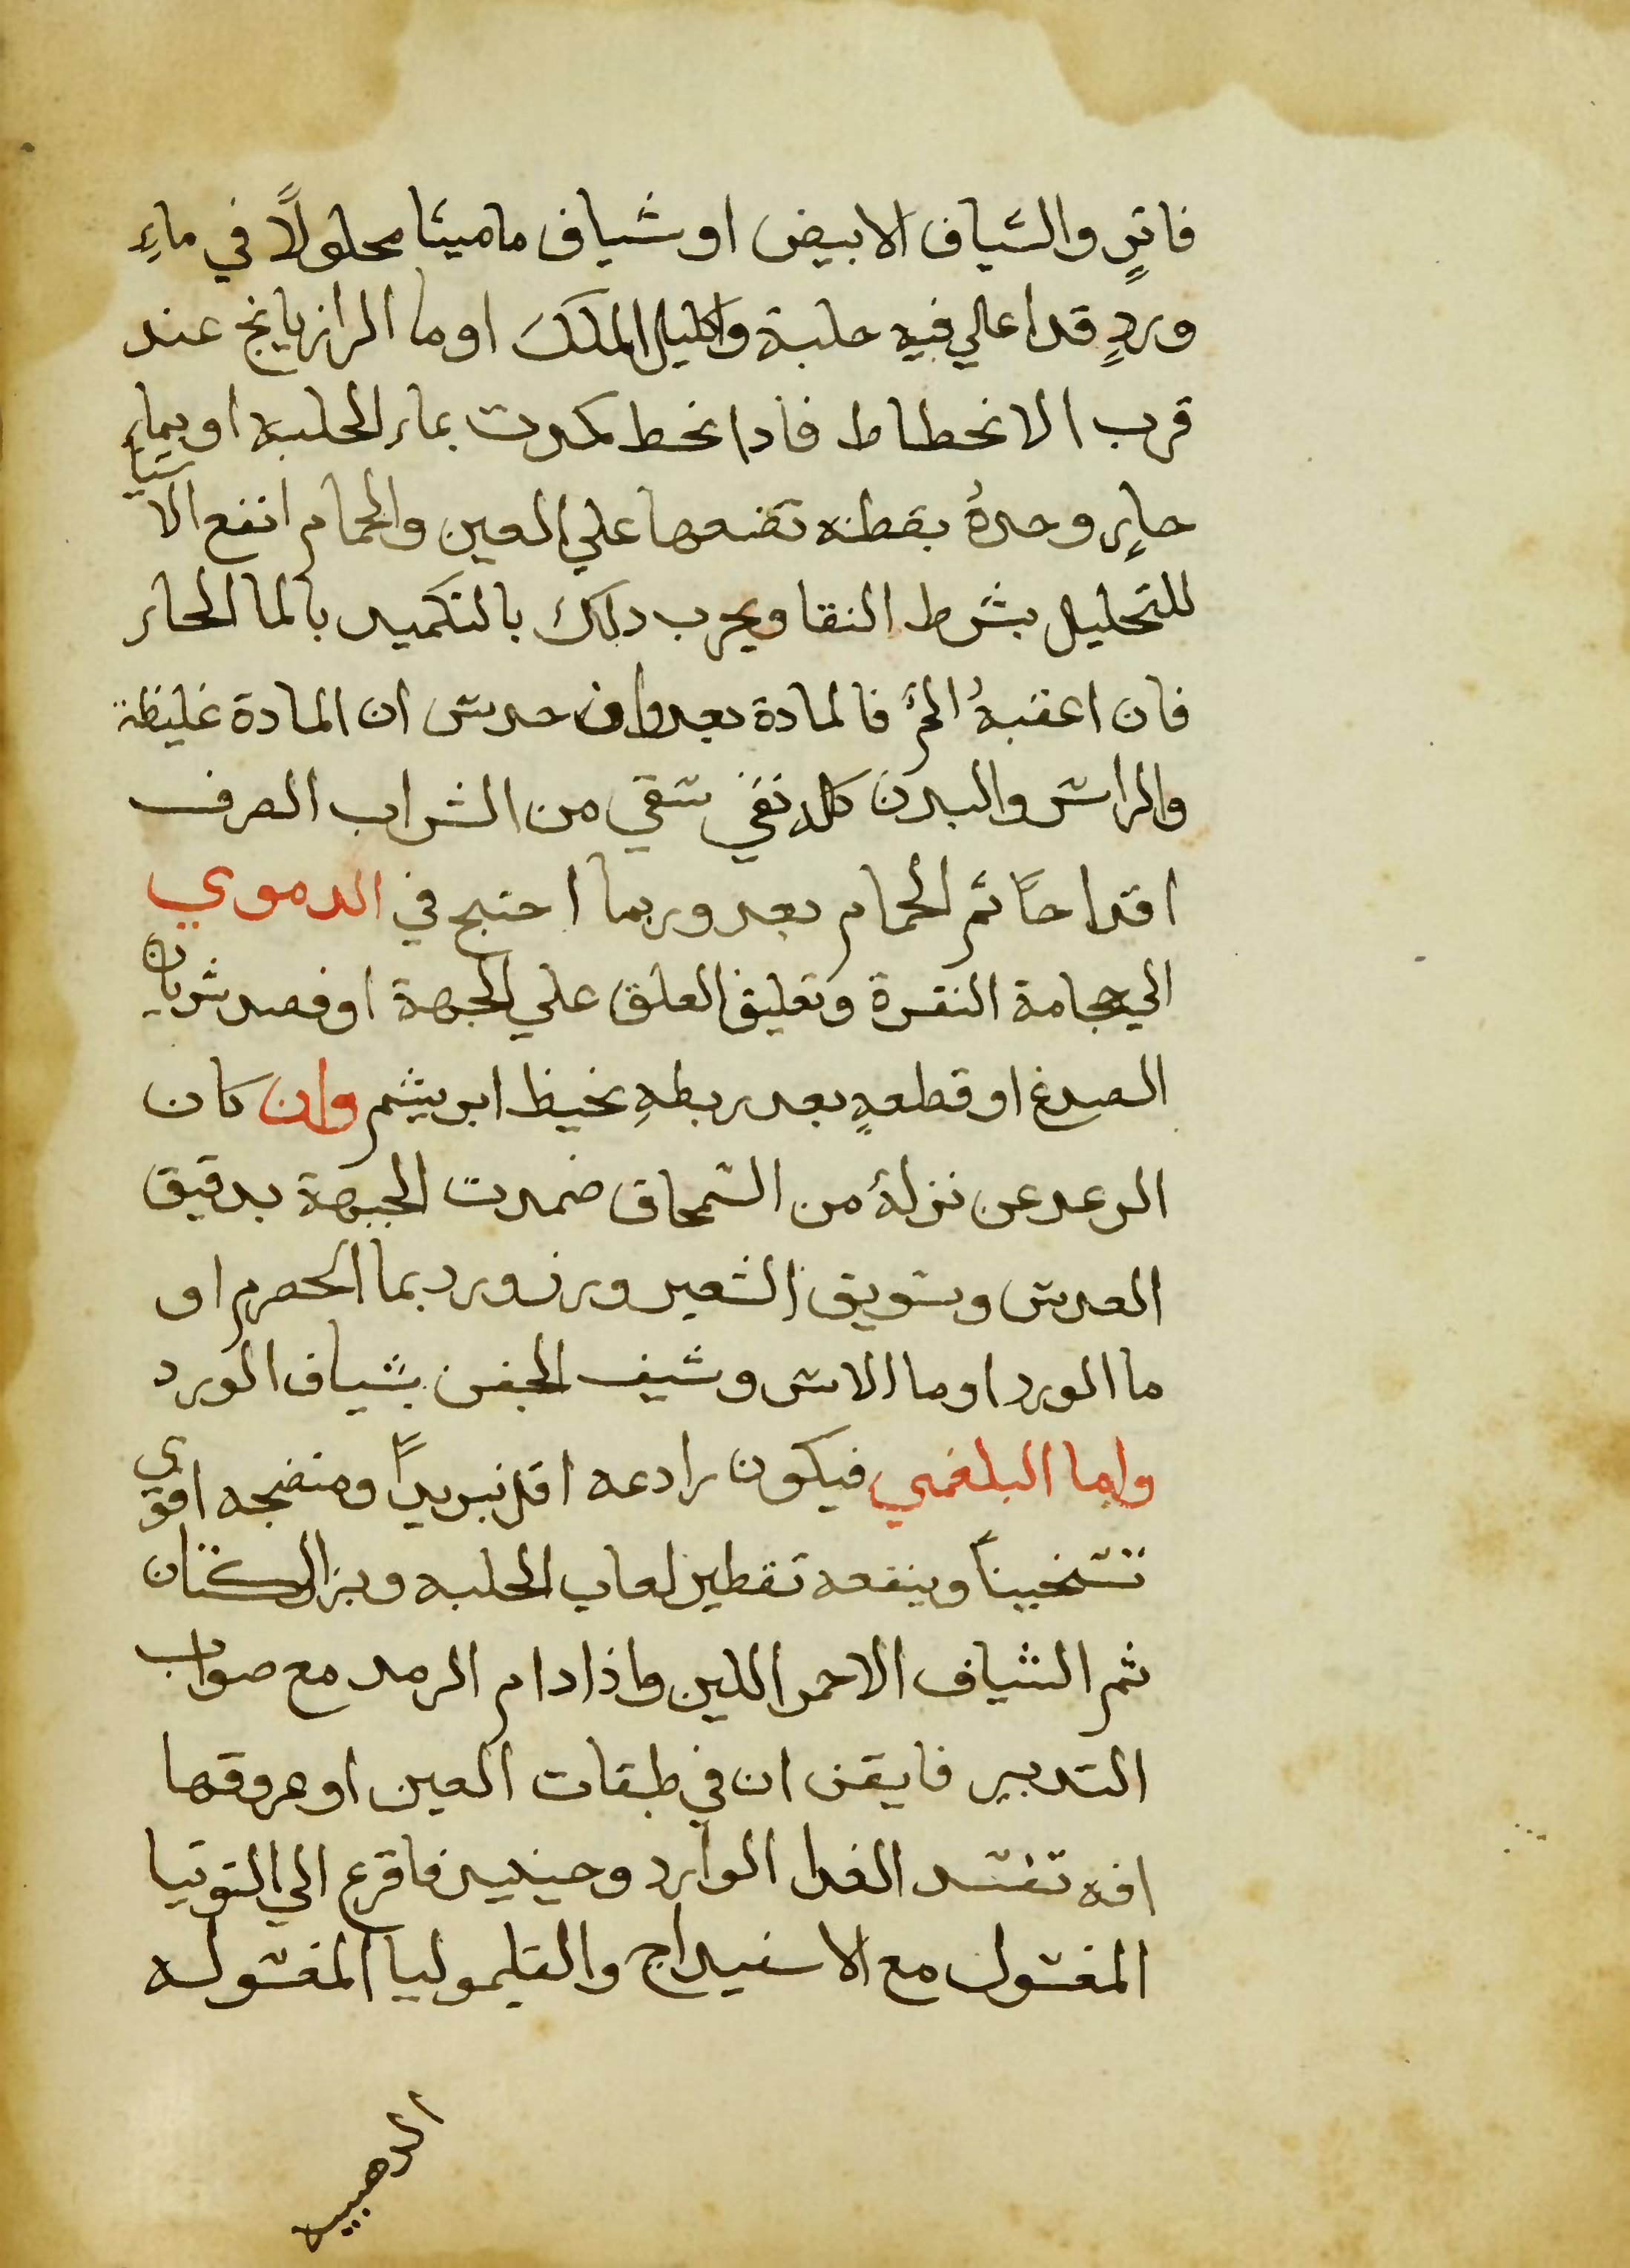 فاترٍ والشياف الابيض او شياف ماميثا محلولًا في ماءِ
وردٍ قد اعلي فيه حلبة واكليل الملك او ما الرازيانج عند
قرب الانحطاط فاذا انحط كمدت بماء الحلبه او بماءٍ
حارٍ وحدهُ بقطنه تضعها علي العين والحمام انفع الاشيا
للتحليل بشرط النقا ويجرب ذلك بالتكميد بالما الحار
فان اعقبهُ الحرُّ فالمادة بعد وان حدس ان المادة غليظة
والراس والبدن كله نقي سقي من الشراب الصرف
اقداحاً ثم الحمام بعد وربما احتيج في الدموي
الي حجامة النقرة وتعليق العلق علي الجبهة او فصد شريان
الصدغ او قطعهِ بعد ربطهِ بخيط ابريشم وان كان
الرمد عن نزلة من السمحاق ضمدت الجبهة بدقيق
العدس وسويق الشعير وزر ورد بما الحصرم او
ما الورد او ما الاس وشيف الجفن بشياف الورد
واما البلغمي فيكون رادعه اقل تبريداً ومنضجه اقوي
تسخيناً وينفعه تقطير لعاب الحلبه وبزر الكتان
ثم الشياف الاحمر اللين واذا دام الرمد مع صواب
التدبير فايقن ان في طبقات العين او عروقها
افه تفسد الغدا الوارد وحينيد فاقرع الي التوتيا
المغسول مع الاسفيداج والقليموليا المغسوله
الذهبيه